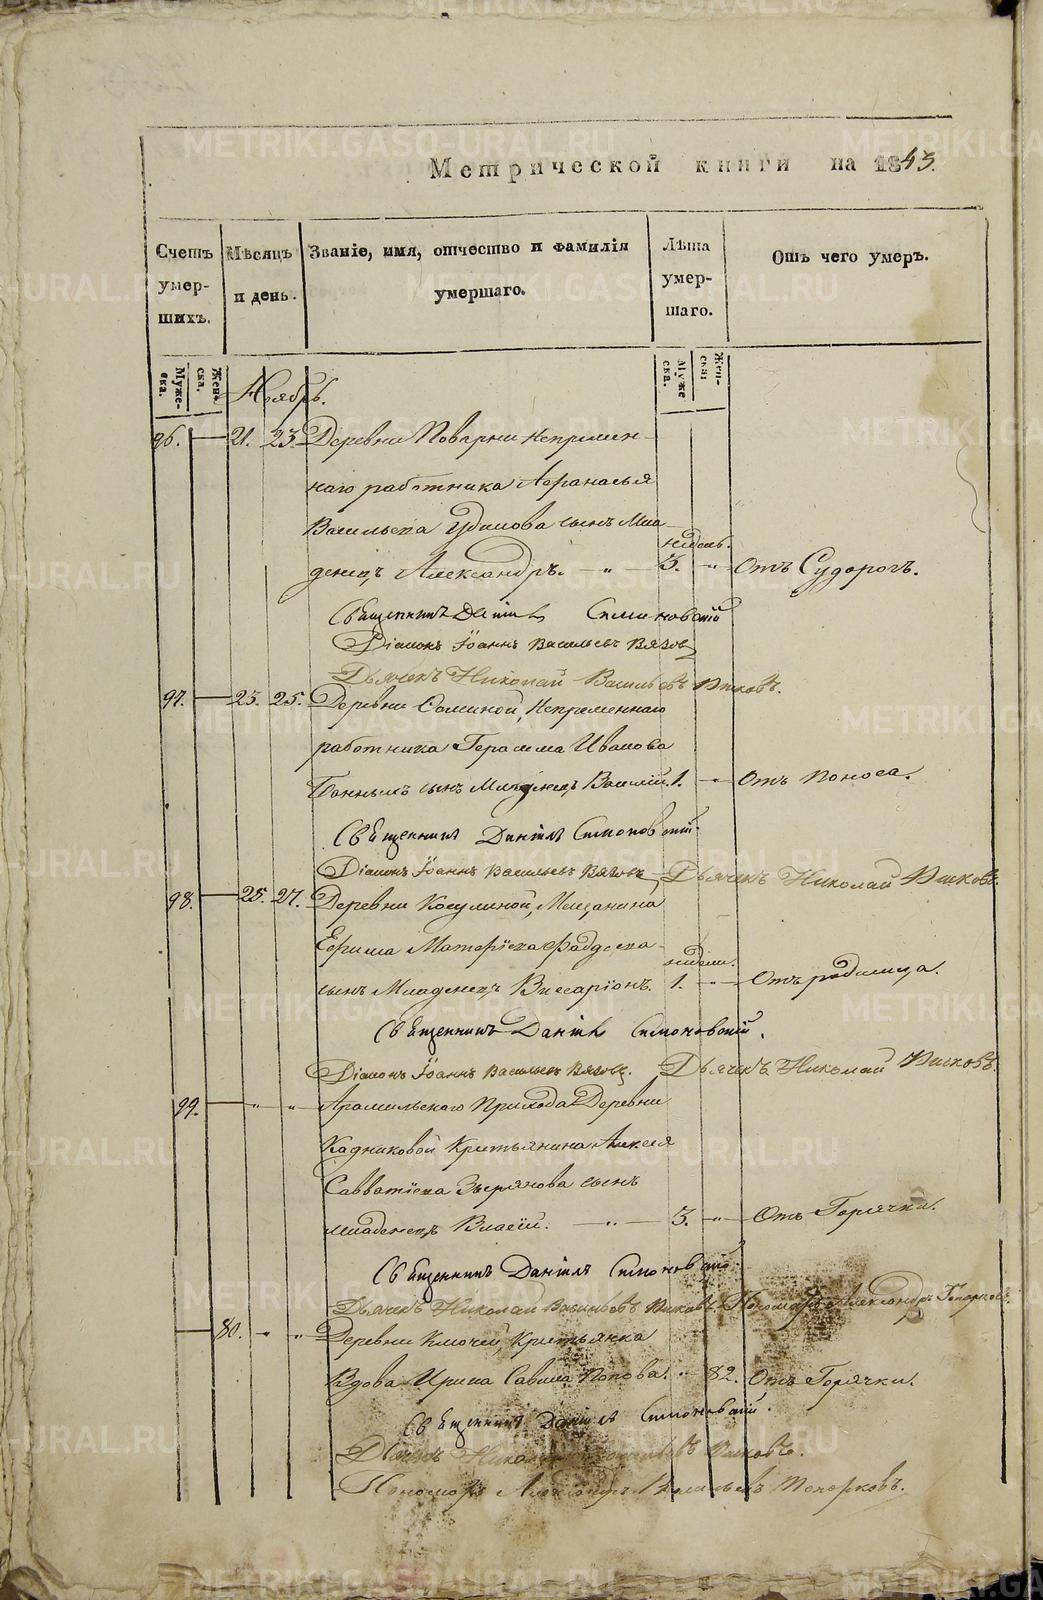 Метрической книги на 1843.
Счетъ умер-шихъ.
Мѣсяцъ и день.
Званіе, имя, отчество и фамилія умершаго.
Лѣта умер-шаго.
Отъ чего умеръ.
Муже-ска.
Жен-ска.
Муже ска.
Жен-ска.
Ноябрь.
96. 21. 23. Деревни Поварни непремен-
наго работника Афанасья
Васильева сынъ Мла-
недель.
денецъ Александръ. — „ — 3. „ Отъ Судорогъ.
Священникъ Даніилъ Симоновскій
Діаконъ Іоаннъ Васильевъ Вязовъ
Дьячекъ Николай Васильевъ
97. 23. 25. Деревни непременнаго
работника Герасима Иванова
сынъ Младенецъ Василій. 1. „ Отъ поноса.
Священникъ Даніилъ Симоновскій
Діаконъ Іоаннъ Васильевъ Вязовъ Дьячекъ Николай
98. 25. 27. Деревни Косулиной, Мещанина
Ефима Матфѣева
недели.
сынъ Младенецъ Виссаріонъ. 1. „ Отъ родимца.
Священникъ Даніилъ Симоновскій.
Діаконъ Іоаннъ Васильевъ Вязовъ. Дьячекъ Николай
99. „ „ Арамильскаго Прихода Деревни
Кадниковой Крестьянина Алексея
Савватіева Зырянова сынъ
младенецъ Власій. — „ — 3. „ Отъ Горячки.
Священникъ Даніилъ Симоновскій.
Дьячекъ Николай Васильевъ Пономарь Александръ Топорковъ.
80. „ „ Деревни Ключей, Крестьянка
Вдова Ирина Савина Попова. „ 82. Отъ Горячки.
Священникъ Даніилъ Симоновскій.
Дьячекъ Николай Васильевъ
Пономарь Александръ Васильевъ Топорковъ.
METRIKI.GASO-URAL.RU